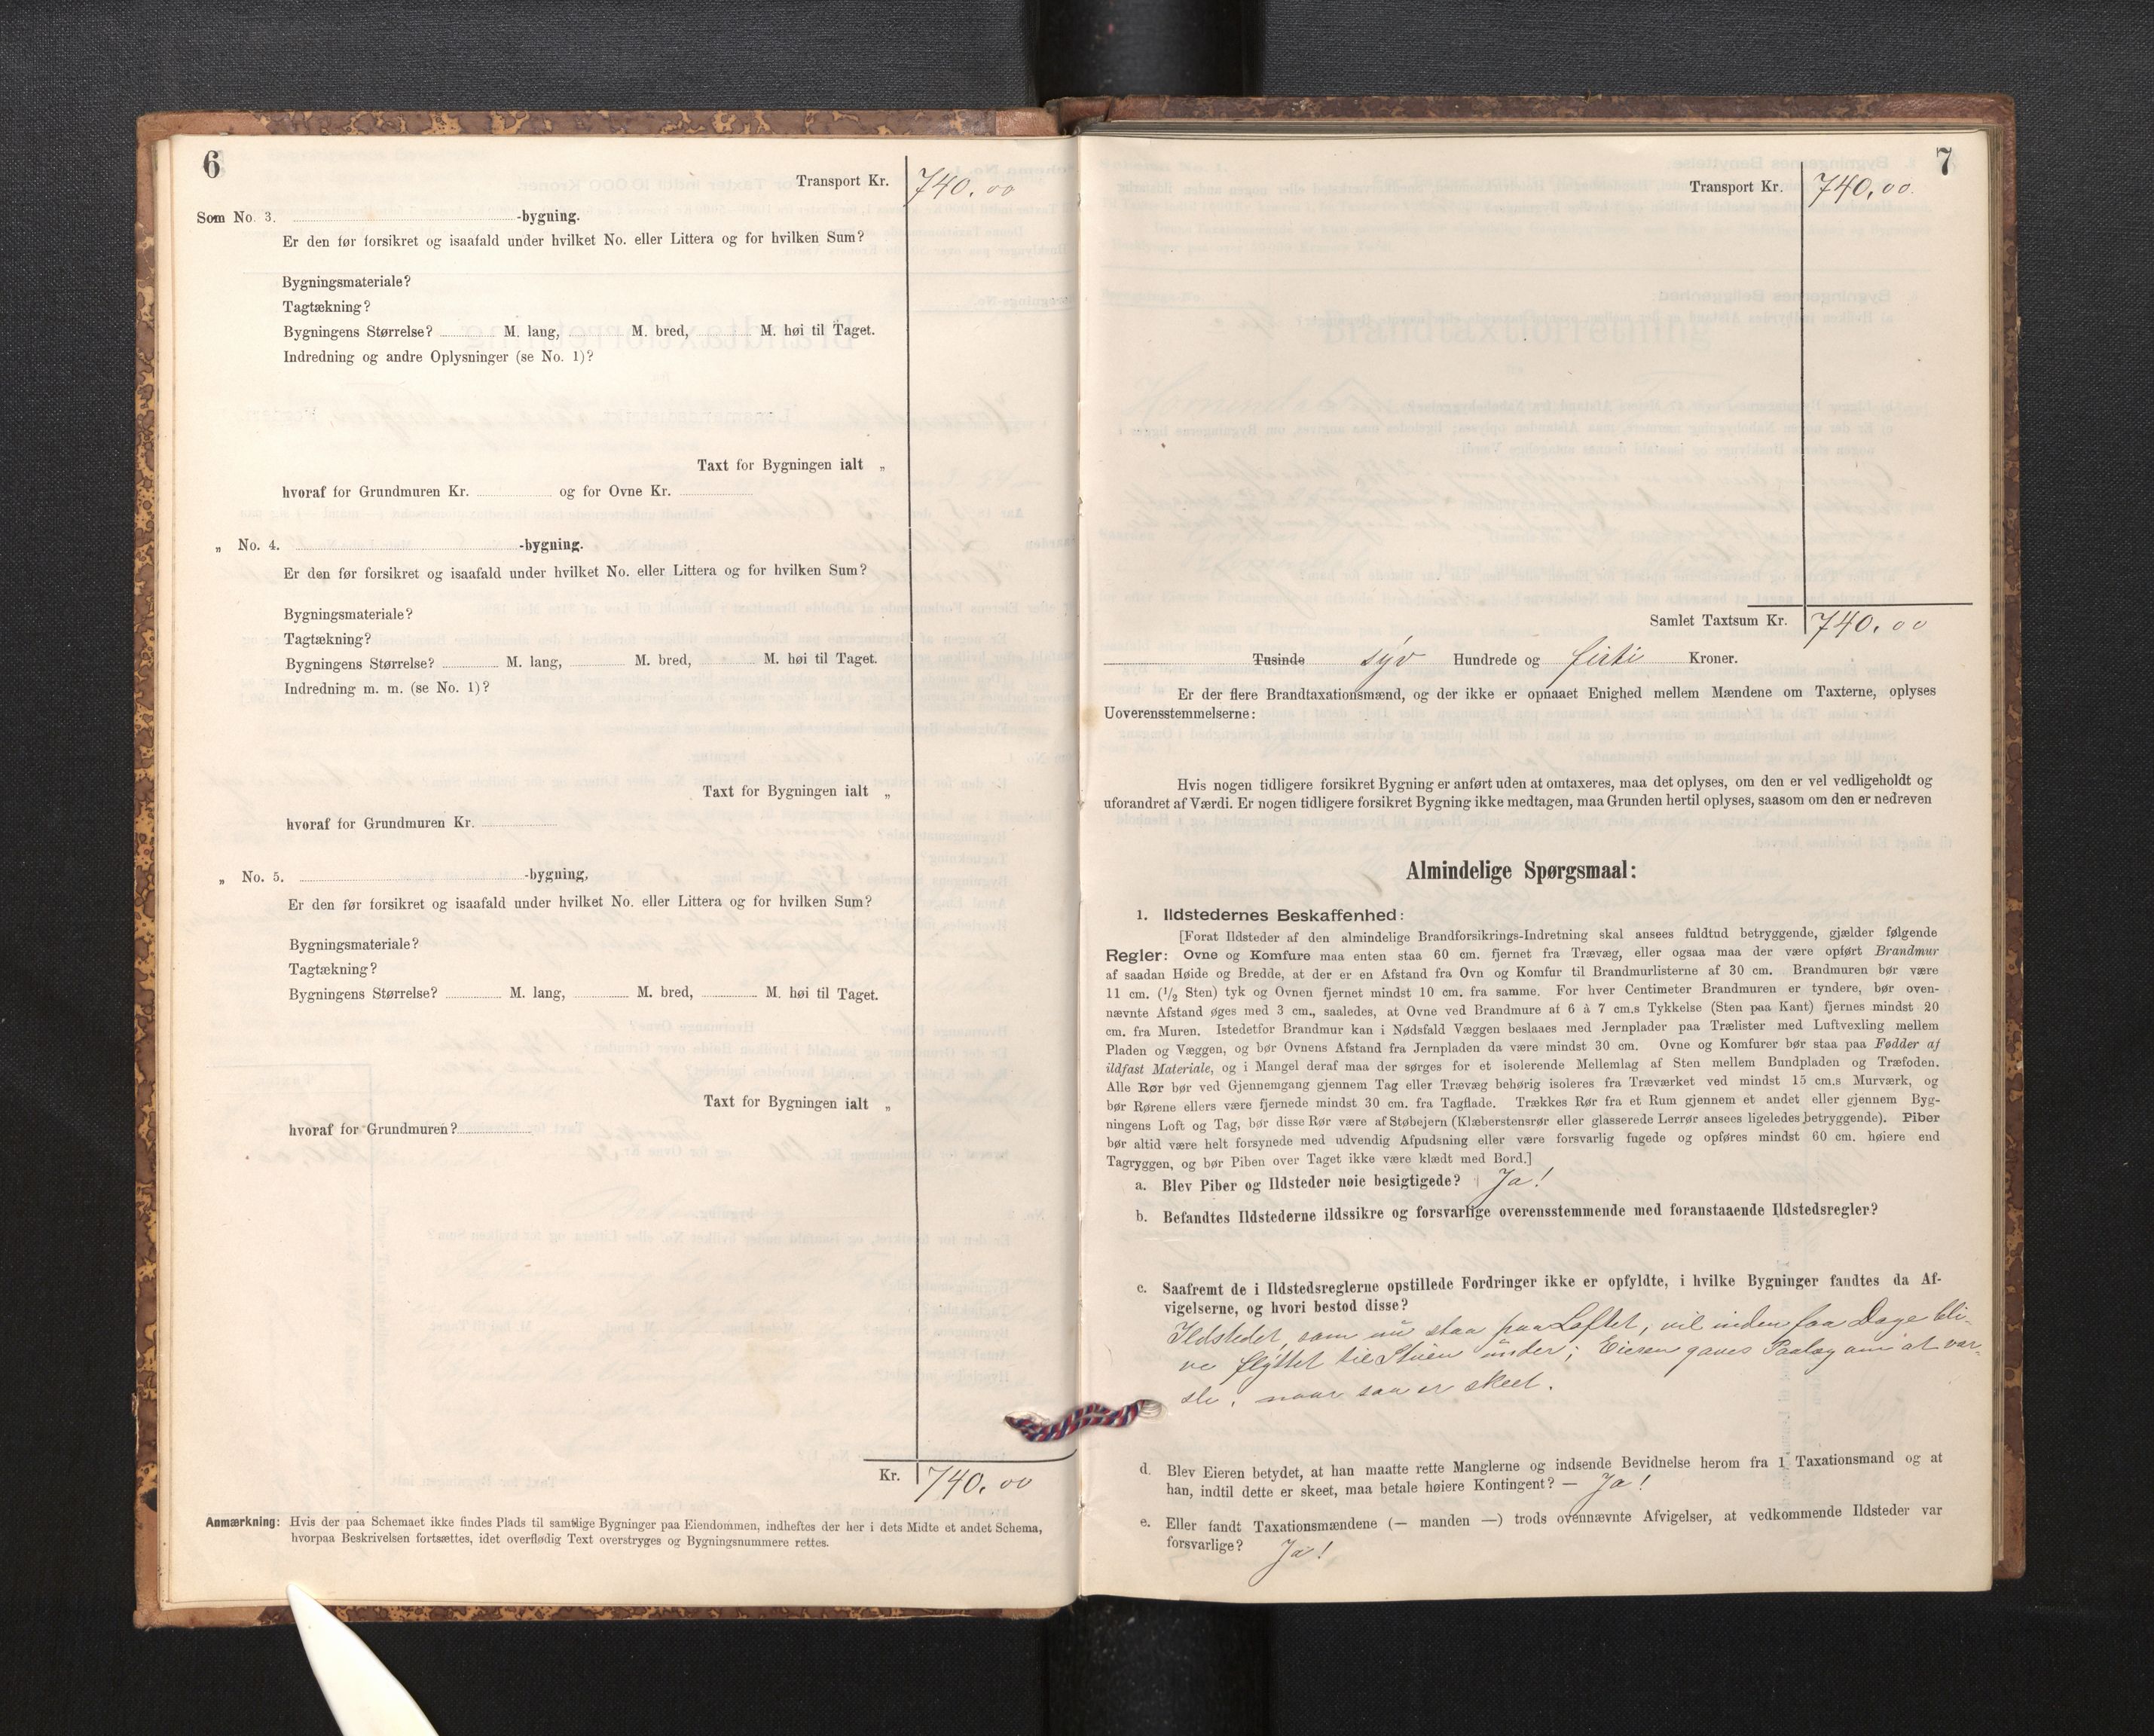 6
Transport Kr. 740.00
Som No. 3. -bygning.
Er den før forsikret og isaafald under hvilket No. eller Littera og for hvilken Sum?
Bygningsmateriale?
Tagtækning?
Bygningens Størrelse? M. lang, M. bred, M. høi til Taget.
Indredning og andre Oplysninger (se No. 1)?
Taxt for Bygningen ialt „
hvoraf for Grundmuren Kr. og for Ovne Kr.
„ No. 4. -bygning.
Er den før forsikret og isaafald under hvilket No. eller Littera og for hvilken Sum?
Bygningsmateriale?
Tagtækning?
Bygningens Størrelse? M. lang, M. bred, M. høi til Taget.
Indredning m. m. (se No. 1)?
Taxt for Bygningen ialt „
hvoraf for Grundmuren Kr.
„ No. 5. -bygning.
Er den før forsikret og isaafald under hvilket No. eller Littera og for hvilken Sum?
Bygningsmateriale?
Tagtækning?
Bygningens Størrelse? M. lang, M. bred, M. høi til Taget.
Taxt for Bygningen ialt „
hvoraf for Grundmuren?
Kr. 740.00
Anmærkning: Hvis der paa Schemaet ikke findes Plads til samtlige Bygninger paa Eiendommen, indheftes der her i dets Midte et andet Schema,
hvorpaa Beskrivelsen fortsættes, idet overflødig Text overstryges og Bygningsnummere rettes.
7
Transport Kr. 740.00.
Samlet Taxtsum Kr. 740.00
Tusinde syv Hundrede og firti Kroner.
Er der flere Brandtaxationsmænd, og der ikke er opnaaet Enighed mellem Mændene om Taxterne, oplyses
Uoverensstemmelserne:
Hvis nogen tidligere forsikret Bygning er anført uden at omtaxeres, maa det oplyses, om den er vel vedligeholdt og
uforandret af Værdi. Er nogen tidligere forsikret Bygning ikke medtagen, maa Grunden hertil oplyses, saasom om den er nedreven
Almindelige Spørgsmaal:
1. Ildstedernes Beskaffenhed:
[Forat Ildsteder af den almindelige Brandforsikrings-Indretning skal ansees fuldtud betryggende, gjælder følgende
Regler: Ovne og Komfure maa enten staa 60 cm. fjernet fra Trævæg, eller ogsaa maa der være opført Brandmur
af saadan Høide og Bredde, at der er en Afstand fra Ovn og Komfur til Brandmurlisterne af 30 cm. Brandmuren bør være
11 cm. (1/2 Sten) tyk og Ovnen fjernet mindst 10 cm. fra samme. For hver Centimeter Brandmuren er tyndere, bør oven-
nævnte Afstand øges med 3 cm., saaledes, at Ovne ved Brandmure af 6 à 7 cm.s Tykkelse (Sten paa Kant) fjernes mindst 20
cm. fra Muren. Istedetfor Brandmur kan i Nødsfald Væggen beslaaes med Jernplader paa Trælister med Luftvexling mellem
Pladen og Væggen, og bør Ovnens Afstand fra Jernpladen da være mindst 30 cm. Ovne og Komfurer bør staa paa Fødder af
ildfast Materiale, og i Mangel deraf maa der sørges for et isolerende Mellemlag af Sten mellem Bundpladen og Træfoden.
Alle Rør bør ved Gjennemgang gjennem Tag eller Trævæg behørig isoleres fra Træværket ved mindst 15 cm.s Murværk, og
bør Rørene ellers være fjernede mindst 30 cm. fra Tagflade. Trækkes Rør fra et Rum gjennem et andet eller gjennem Byg-
ningens Loft og Tag, bør disse Rør være af Støbejern (Klæberstensrør eller glasserede Lerrør ansees ligeledes betryggende). Piber
bør altid være helt forsynede med udvendig Afpudsning eller være forsvarlig fugede og opføres mindst 60 cm. høiere end
Tagryggen, og bør Piben over Taget ikke være klædt med Bord.]
a. Blev Piber og Ildsteder nøie besigtigede? Ja!
b. Befandtes Ildstederne ildssikre og forsvarlige overensstemmende med foranstaaende Ildstedsregler?
c. Saafremt de i Ildstedsreglerne opstillede Fordringer ikke er opfyldte, i hvilke Bygninger fandtes da Af-
vigelserne, og hvori bestod disse?
Ildstedet, som nu staa paa Loftet, vil inden faa Dage bli-
ve flyttet til Stuen under; Eieren gaves Paalæg om at var-
sle, naar saa er skeet.
d. Blev Eieren betydet, at han maatte rette Manglerne og indsende Bevidnelse herom fra 1 Taxationsmand og at
han, indtil dette er skeet, maa betale høiere Kontingent? — Ja!
e. Eller fandt Taxationsmændene (— manden —) trods ovennævnte Afvigelser, at vedkommende Ildsteder var
forsvarlige? Ja!